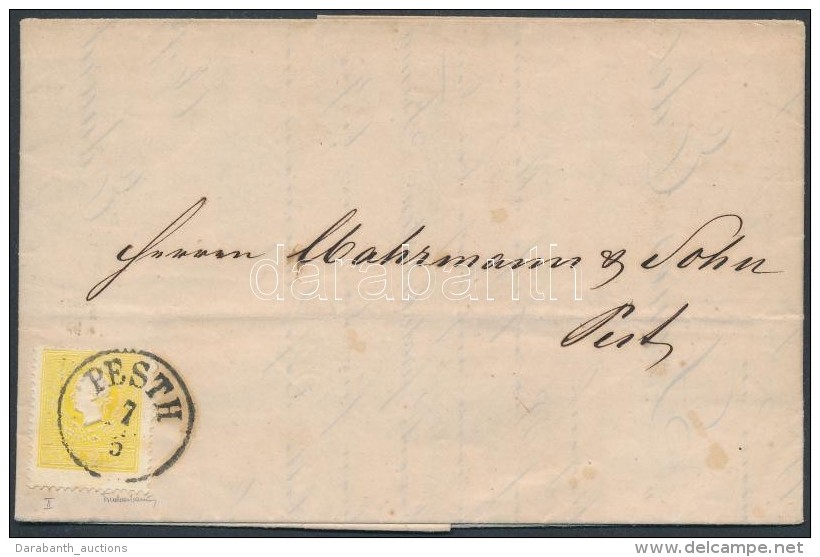 Herren Mahrmann & Sohn
darabanth
Pest
PESTH
7
5
II
Darabanth_auctions
www.delcampe.net